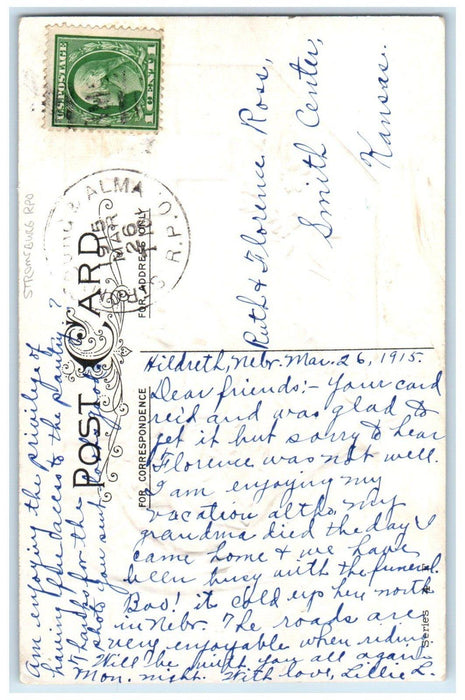 Ruth & Florence Ross,
Smith Center,
Kansas.
U.S.POSTAGE
1 CENT 1
ALMA
MAR
26
1915
R.P.O.
STROMSBURG RPO
POST CARD
FOR ADDRESS ONLY
FOR CORRESPONDENCE
Hildreth, Nebr. Mar. 26, 1915.
Dear friends:- Your card
re'd and was glad to
get it but sorry to hear
Florence was not well.
I am enjoying my
vacation altho my
grandma died the day I
came home & we have
been busy with the funeral.
Boo! it cold up here north
in Nebr. The roads are
very enjoyable when riding.
Will be with you all again
Mon. night. With love, Lillie L.
Am enjoying the privilege of
having free access to the pantry?
Thanks for the
photo you sent
Series